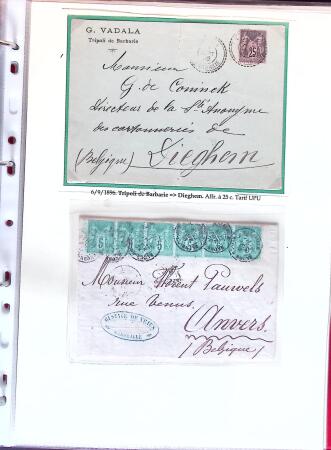 G. VADALA
Tripoli de Barbarie
25
Monsieur
G. de Coninck
Directeur de la Sté Anonyme
des cartonneries de
(Belgique) Dieghem
6/9/1896. Tripoli de Barbarie => Dieghem. Affr. à 25 c. Tarif UPU
Monsieur Florent Pauwels
rue Venus.
Anvers.
(Belgique)
GUSTAVE DE VRIES
MARSEILLE